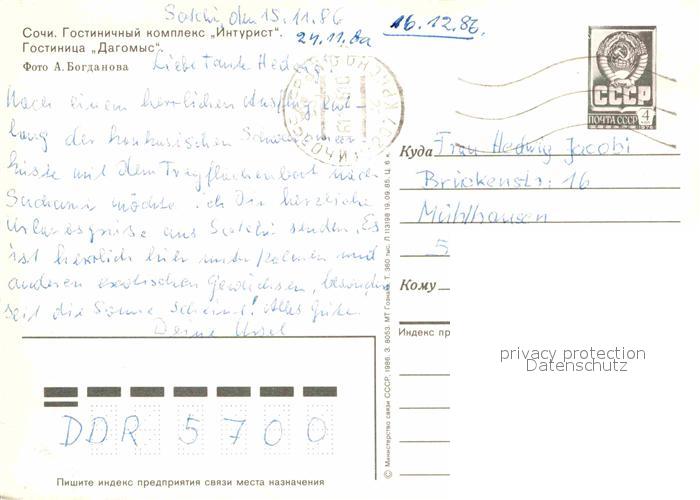 Sotchi, den 15.11.86
24.11.
16.12.86.
Сочи. Гостиничный комплекс „Интурист".
Гостиница „Дагомыс".
Фото А. Богданова
Liebe Tante Hedwig!
Nach einem herrlichen Ausflug ent-
lang der kaukasischen Schwarzmeer-
küste mit dem Tragflächenboot nach
Suchumi möchte ich Dir herzliche
Urlaubsgrüße aus Sotchi senden. Es
ist herrlich hier unter Palmen und
anderen exotischen Gewächsen, besonders
seit die Sonne scheint! Alles Gute
Deine Ursel
СССР
ПОЧТА СССР 4
1976
Куда Frau Hedwig Jacobi
Brückenstr. 16
Mühlhausen
5
Кому
Индекс пр
privacy protection
Datenschutz
© Министерство связи СССР, 1986. З. 8053. МТ Гознака. Т. 360 тыс. Л 113198 19.09.85. Ц. 6 к.
DDR 5700
Пишите индекс предприятия связи места назначения